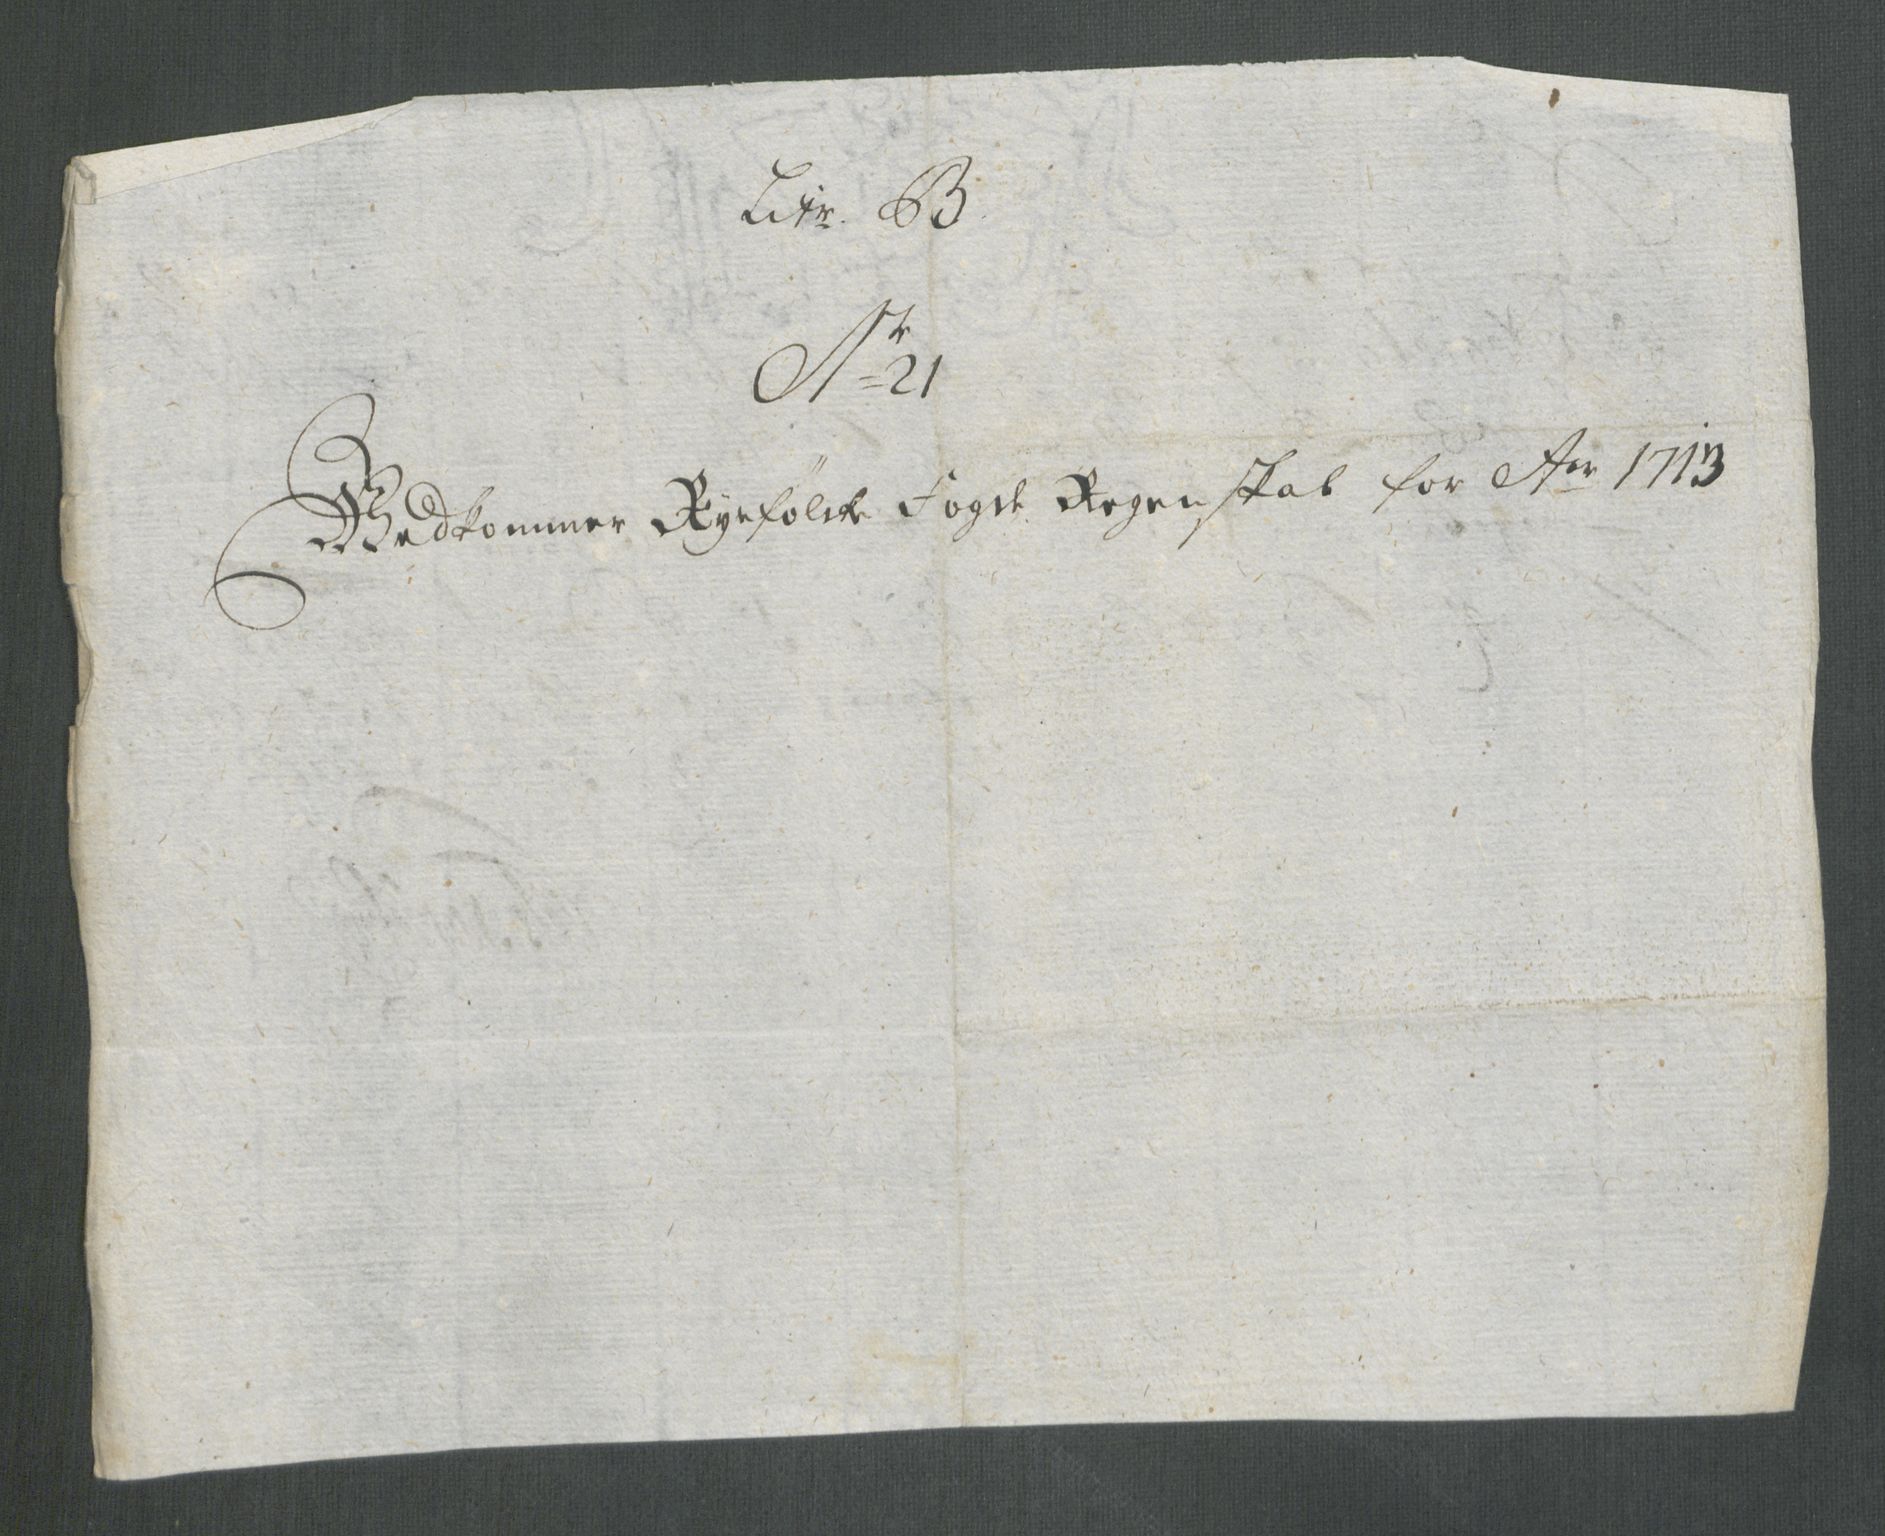 Litr. B.
Nr 21
Vedkommer Ryefølcke Fogde Regenskab for Aar 1713